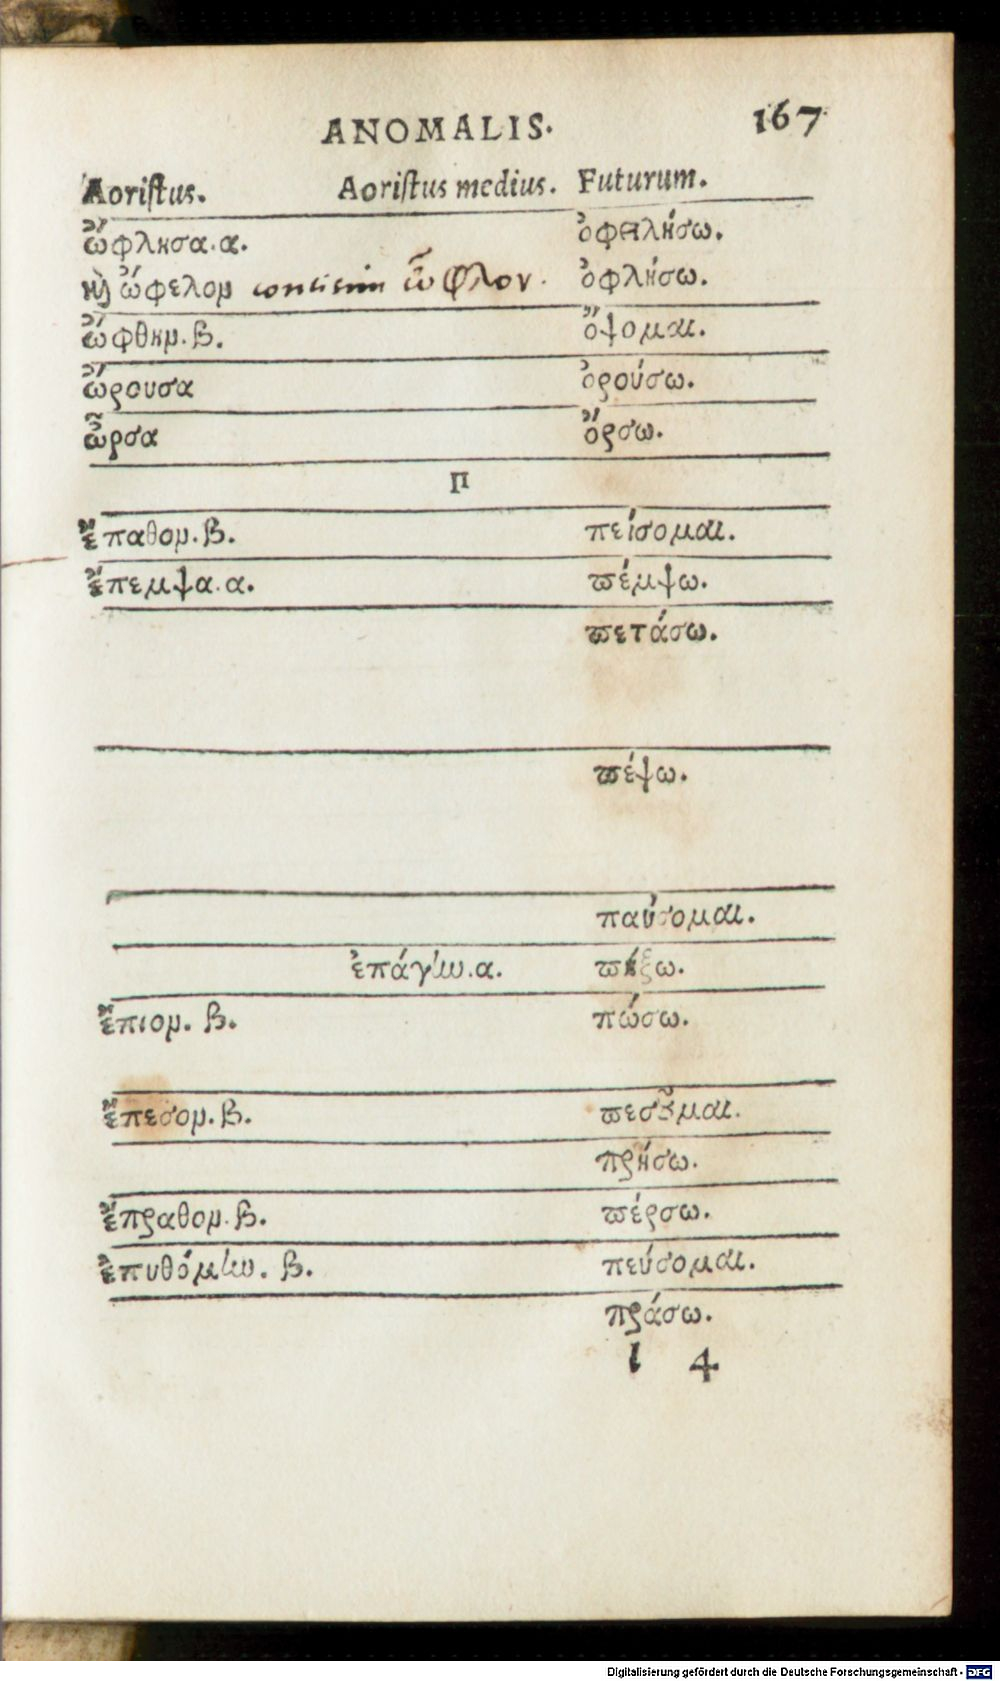 ANOMALIS. 167
Aoristus. Aoristus medius. Futurum.
ὤφλησα.α. ὀφειλήσω.
καὶ ὤφελον ὦφλον. ὀφλήσω.
ὤφθην.β. ὄψομαι.
ὤρουσα ὀρούσω.
ὦρσα ὄρσω.
Π
ἔπαθον.β. πείσομαι.
ἔπεμψα.α. πέμψω.
πετάσω.
πέψω.
παύσομαι.
ἐπάγην.α. πήξω.
ἔπιον. β. πώσω.
ἔπεσον.β. πεσοῦμαι.
πρήσω.
ἔπραθον.β. πέρσω.
ἐπυθόμην. β. πεύσομαι.
πράσω.
l 4
Digitalisierung gefördert durch die Deutsche Forschungsgemeinschaft - DFG